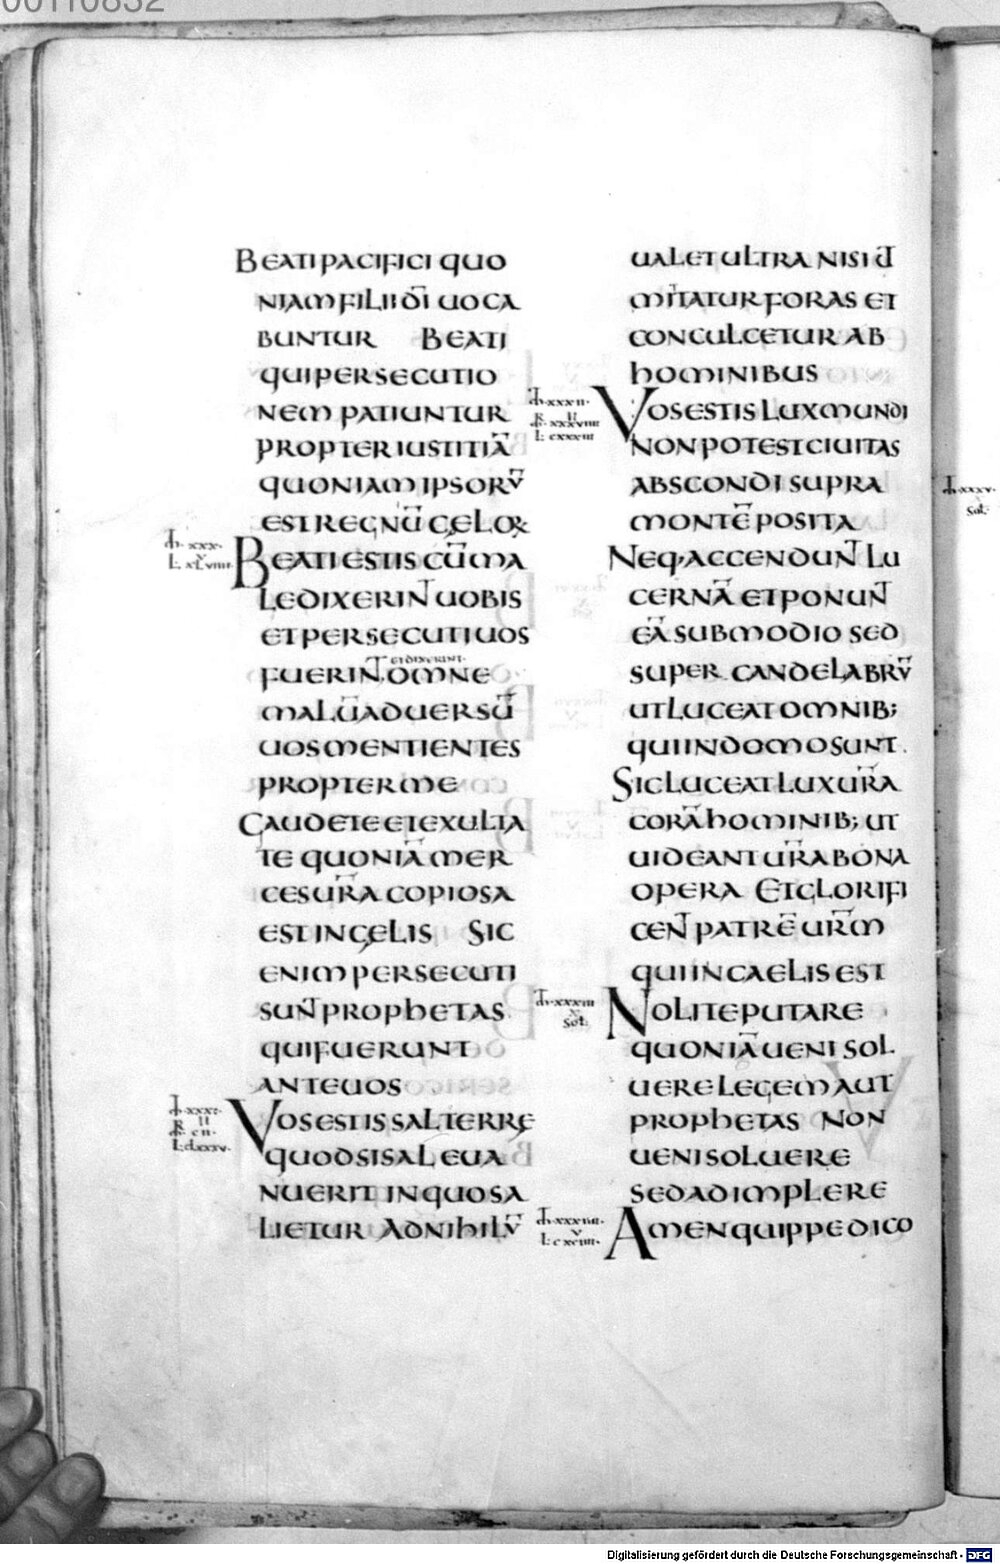 00110832
BEATI PACIFICI QUO
NIAM FILII D̄I UOCA
BUNTUR BEATI
QUI PERSECUTIO
NEM PATIUNTUR
PROPTER IUSTITIĀ
QUONIAM IPSORV̄
EST REGNŪ CĘLOꝜ
m̄·xxx·
v
L·xLviiii·
BEATI ESTIS CŪ MA
LEDIXERIN̄T UOBIS
ET PERSECUTI UOS
FUERIN̄T ET DIXERINT· OMNE
MALŪ ADUERSŪ
UOS MENTIENTES
PROPTER ME
GAUDETE ET EXULTA
TE QUONIĀ MER
CES UR̄A COPIOSA
EST IN CĘLIS SIC
ENIM PERSECUTI
SUN̄T PROPHETAS
QUI FUERUNT
ANTE UOS
m̄·xxxi·
II
m̄·cii·
L·cLxxxv·
VOS ESTIS SAL TERRĘ
QUOD SI SAL EUA
NUERIT IN QUO SA
LIETUR AD NIHILV̄
UALET ULTRA NISI U̅T
MIT̄TATUR FORAS ET
CONCULCETUR AB
HOMINIBUS
m̄·xxxii·
II
m̄·xxxviiii
L·cxxxiii
VOS ESTIS LUX MUNDI
NON POTEST CIUITAS
ABSCONDI SUPRA
MONTĒ POSITA
NEQ· ACCENDUN̄T LU
CERNĀ ET PONUN̄T
EĀ SUB MODIO SED
SUPER CANDELABRV̄
UT LUCEAT OMNIB;
QUI IN DOMO SUNT.
SIC LUCEAT LUX UR̄A
CORĀ HOMINIB; UT
UIDEANT UR̄A BONA
OPERA ET GLORIFI
CEN̄T PATRĒ UR̄M
QUI IN CAELIS EST
m̄·xxxiii
x
Sol·
NOLITE PUTARE
QUONIĀ UENI SOL
UERE LEGEM AUT
PROPHETAS NON
UENI SOLUERE
SED ADIMPLERE
m̄·xxxiiii·
v
L·cxciiii·
AMEN QUIPPE DICO
m̄·xxxv·
Sol·
Digitalisierung gefördert durch die Deutsche Forschungsgemeinschaft - DFG